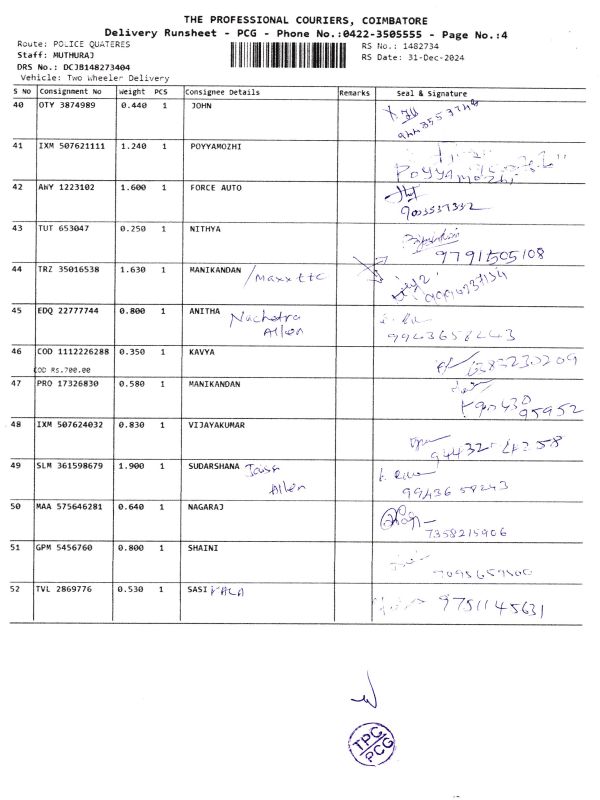 THE PROFESSIONAL COURIERS, COIMBATORE
Delivery Runsheet - PCG - Phone No.:0422-3505555 - Page No.:4
Route: POLICE QUATERES RS No.: 1482734
Staff: MUTHURAJ RS Date: 31-Dec-2024
DRS No.: DCJB148273404
Vehicle: Two Wheeler Delivery
S No Consignment No Weight PCS Consignee Details Remarks Seal & Signature
40 OTY 3874989 0.440 1 JOHN
41 IXM 507621111 1.240 1 POYYAMOZHI
POYYAMOZHI
42 AWY 1223102 1.600 1 FORCE AUTO
43 TUT 653047 0.250 1 NITHYA
9791505108
44 TRZ 35016538 1.630 1 MANIKANDAN /Maxx ttc
45 EDQ 22777744 0.800 1 ANITHA
Allen
9943658243
46 COD 1112226288 0.350 1 KAVYA
COD Rs.700.00
47 PRO 17326830 0.580 1 MANIKANDAN
95952
48 IXM 507624032 0.830 1 VIJAYAKUMAR
49 SLM 361598679 1.900 1 SUDARSHANA
Allen
9943658243
50 MAA 575646281 0.640 1 NAGARAJ
7358215906
51 GPM 5456760 0.800 1 SHAINI
7095659500
52 TVL 2869776 0.530 1 SASI KALA 9751145631
TPC
PCG